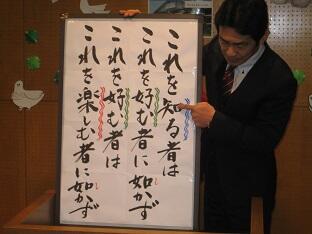 これを知る者は
これを好む者に如かず
これを好む者は
これを楽しむ者に如かず